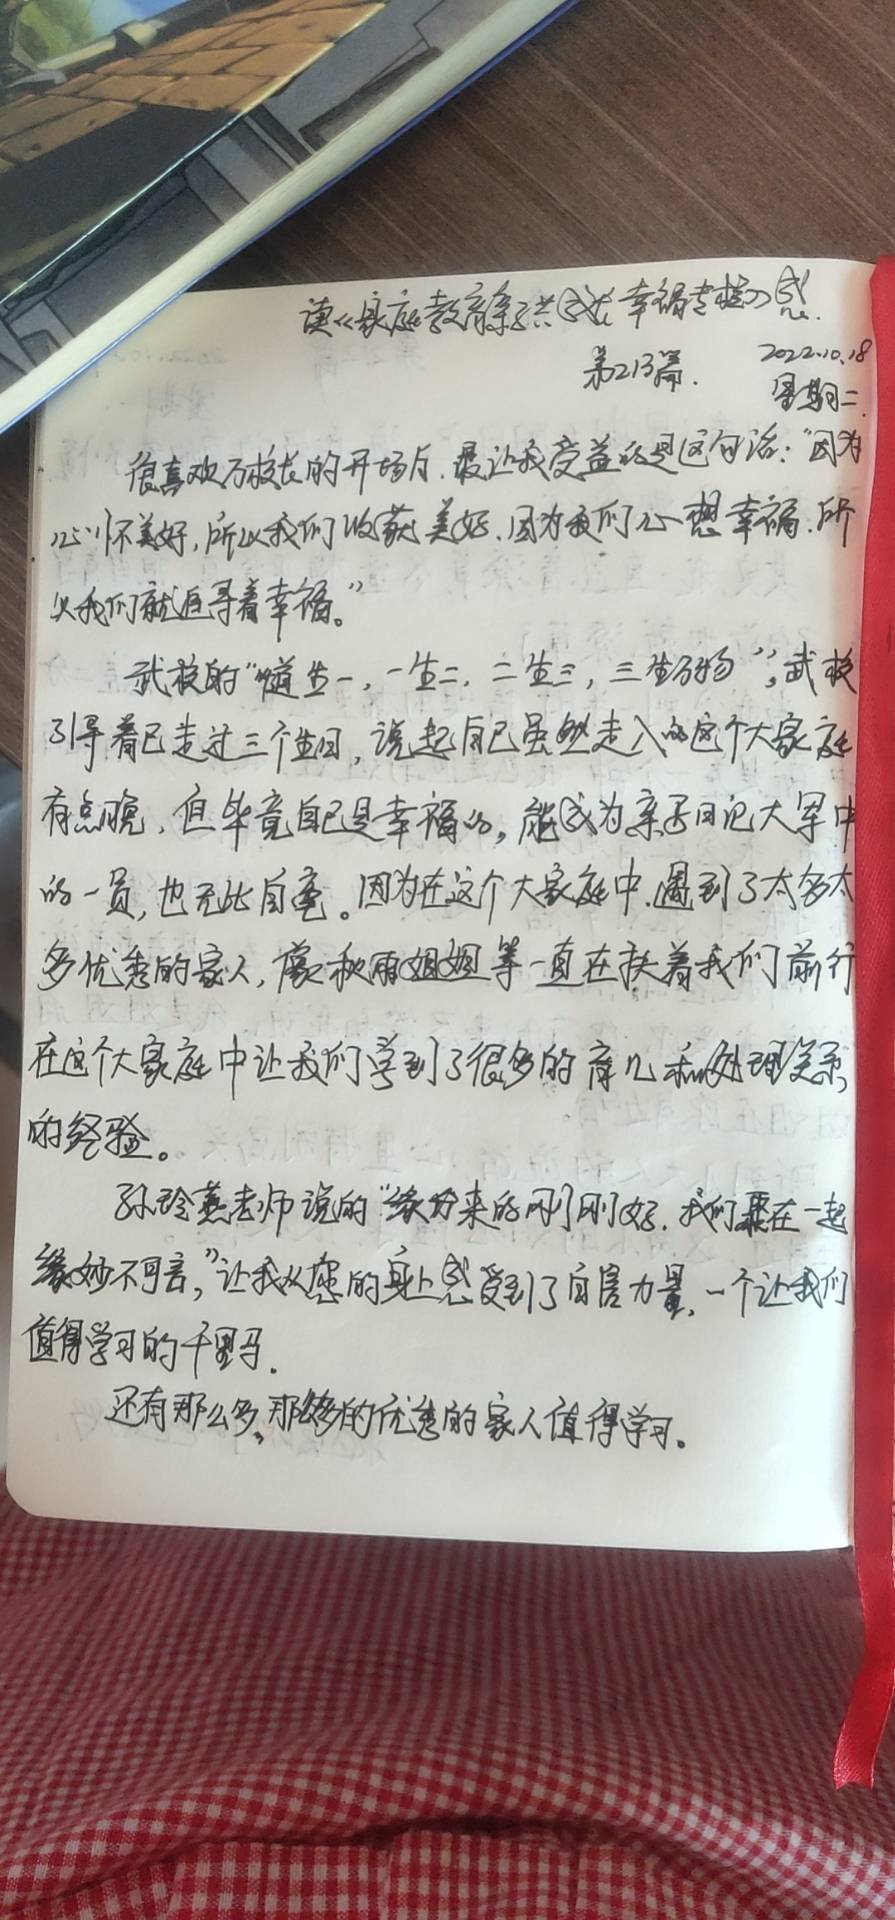 读《家庭教育亲子共成长幸福专栏》感
第213篇.
2022.10.18
星期二.
很喜欢万校长的开场白.最让我受益的是这句话:“因为
心怀美好,所以我们收获美好.因为我们心想幸福.所
以我们就追寻着幸福。”
武校的“道生一,一生二,二生三,三生万物”,武校
引导着已走过三个生日,说起自己虽然走入的这个大家庭
有点晚,但毕竟自己是幸福的,能成为亲子日记大军中
的一员,也无比自豪。因为在这个大家庭中.遇到了太多太
多优秀的家人,像秋雨姐姐等一直在扶着我们前行
在这个大家庭中让我们学到了很多的育儿和处理关系
的经验。
孙玲燕老师说的“缘分来的刚刚好.我们聚在一起
缘妙不可言,”让我从您的身上感受到了自害力量,一个让我们
值得学习的千里马.
还有那么多,那么多的优秀的家人值得学习。